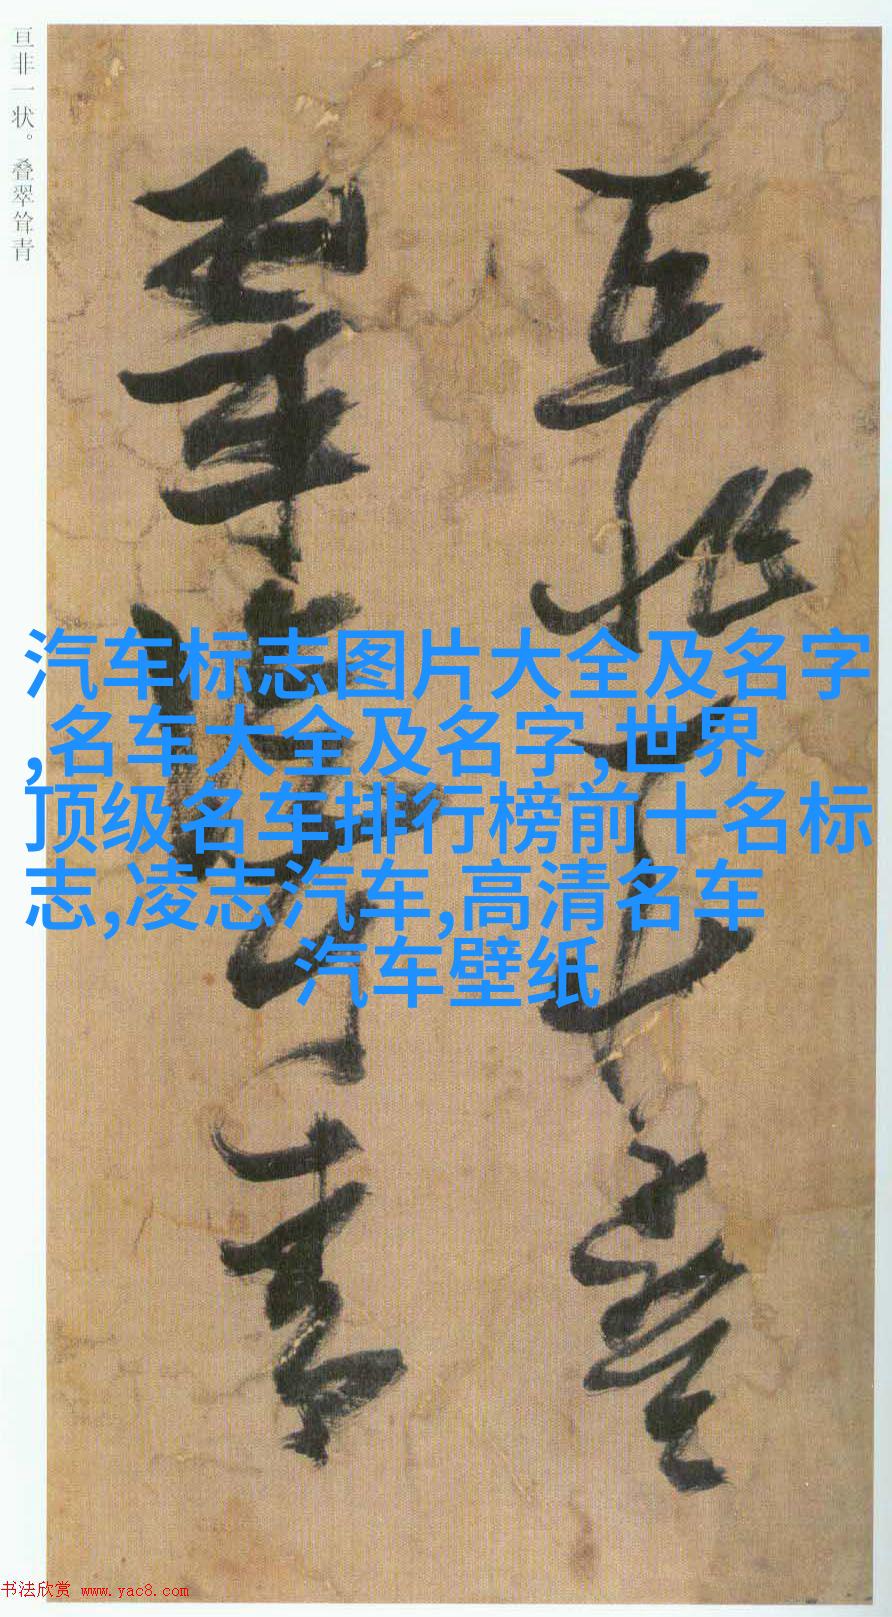 亘非一状。叠翠耸青
亘非一状
叠翠耸青
汽车标志图片大全及名字
,名车大全及名字,世界
顶级名车排行榜前十名标
志,凌志汽车,高清名车
汽车壁纸
书法欣赏 www.yac8.com